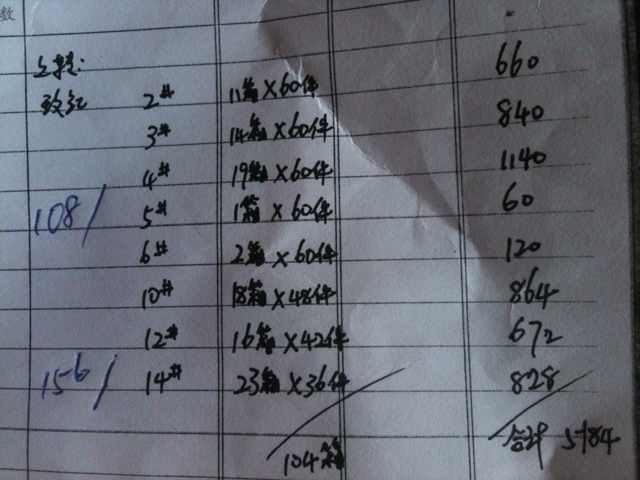 数
上鞋:
玫红 2# 11箱×60件 660
3# 14箱×60件 840
4# 19箱×60件 1140
108/ 5# 1箱×60件 60
6# 2箱×60件 120
10# 18箱×48件 864
12# 16箱×42件 672
156/ 14# 23箱×36件 828
104箱 合计 5184